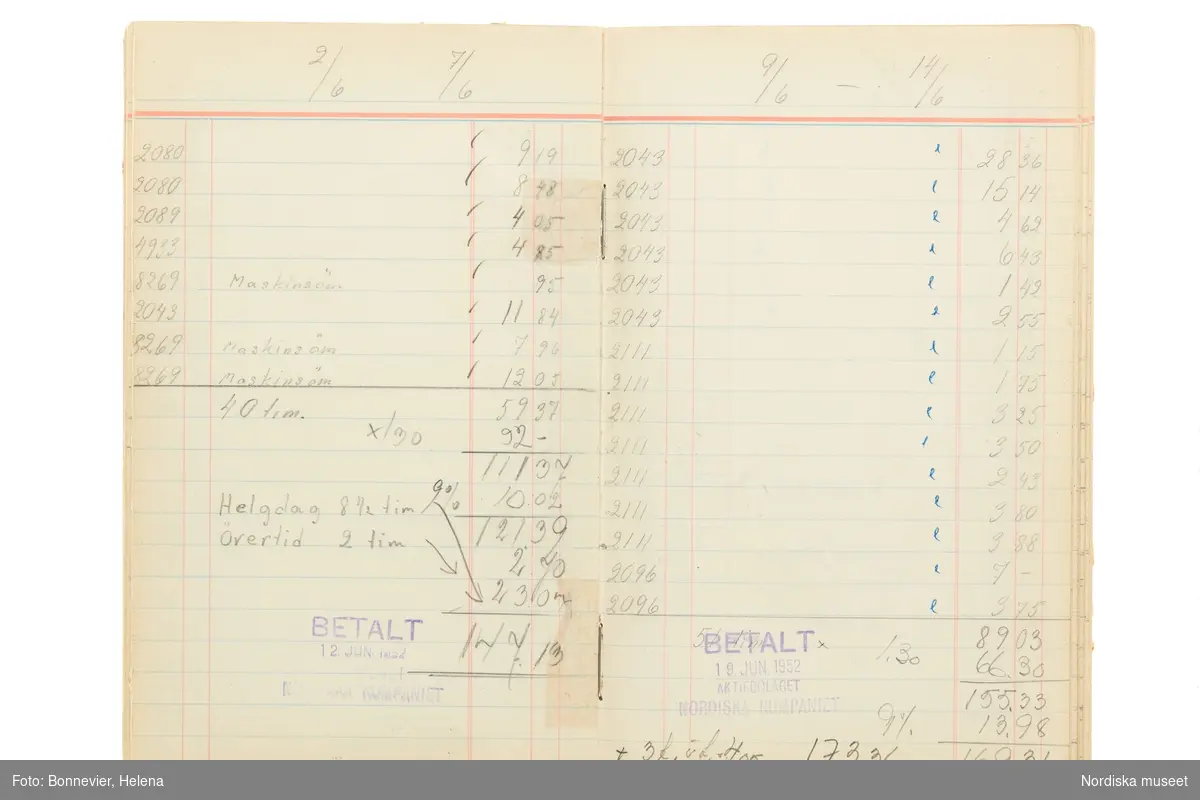 2/6 7/6
2080 9 19
2080 8 48
2089 4 05
4933 4 85
8269 Maskinsöm 95
2043 11 84
8269 Maskinsöm 7 96
8269 Maskinsöm 12 05
40 tim. 59 37
x 1/30 52 -
111 37
9% 10.02
Helgdag 8 1/2 tim
121.39
Övertid 2 tim
2.70
23.07
147.13
BETALT
12. JUN. 1952
KOMPANIET
9/6 — 14/6
2043 28 36
2043 15 14
2043 4 62
2043 6 43
2043 1 42
2043 2 55
2111 1 15
2111 1 75
2111 3 25
2111 3 50
2111 2 43
2111 3 80
2111 3 88
2096 7 -
2096 3 75
x 1.30 89 03
66.30
155.33
9% 13.98
BETALT
19 JUN 1952
AKTIEBOLAGET
NORDISKA KOMPANIET
169 31
Foto: Bonnevier, Helena
Nordiska museet